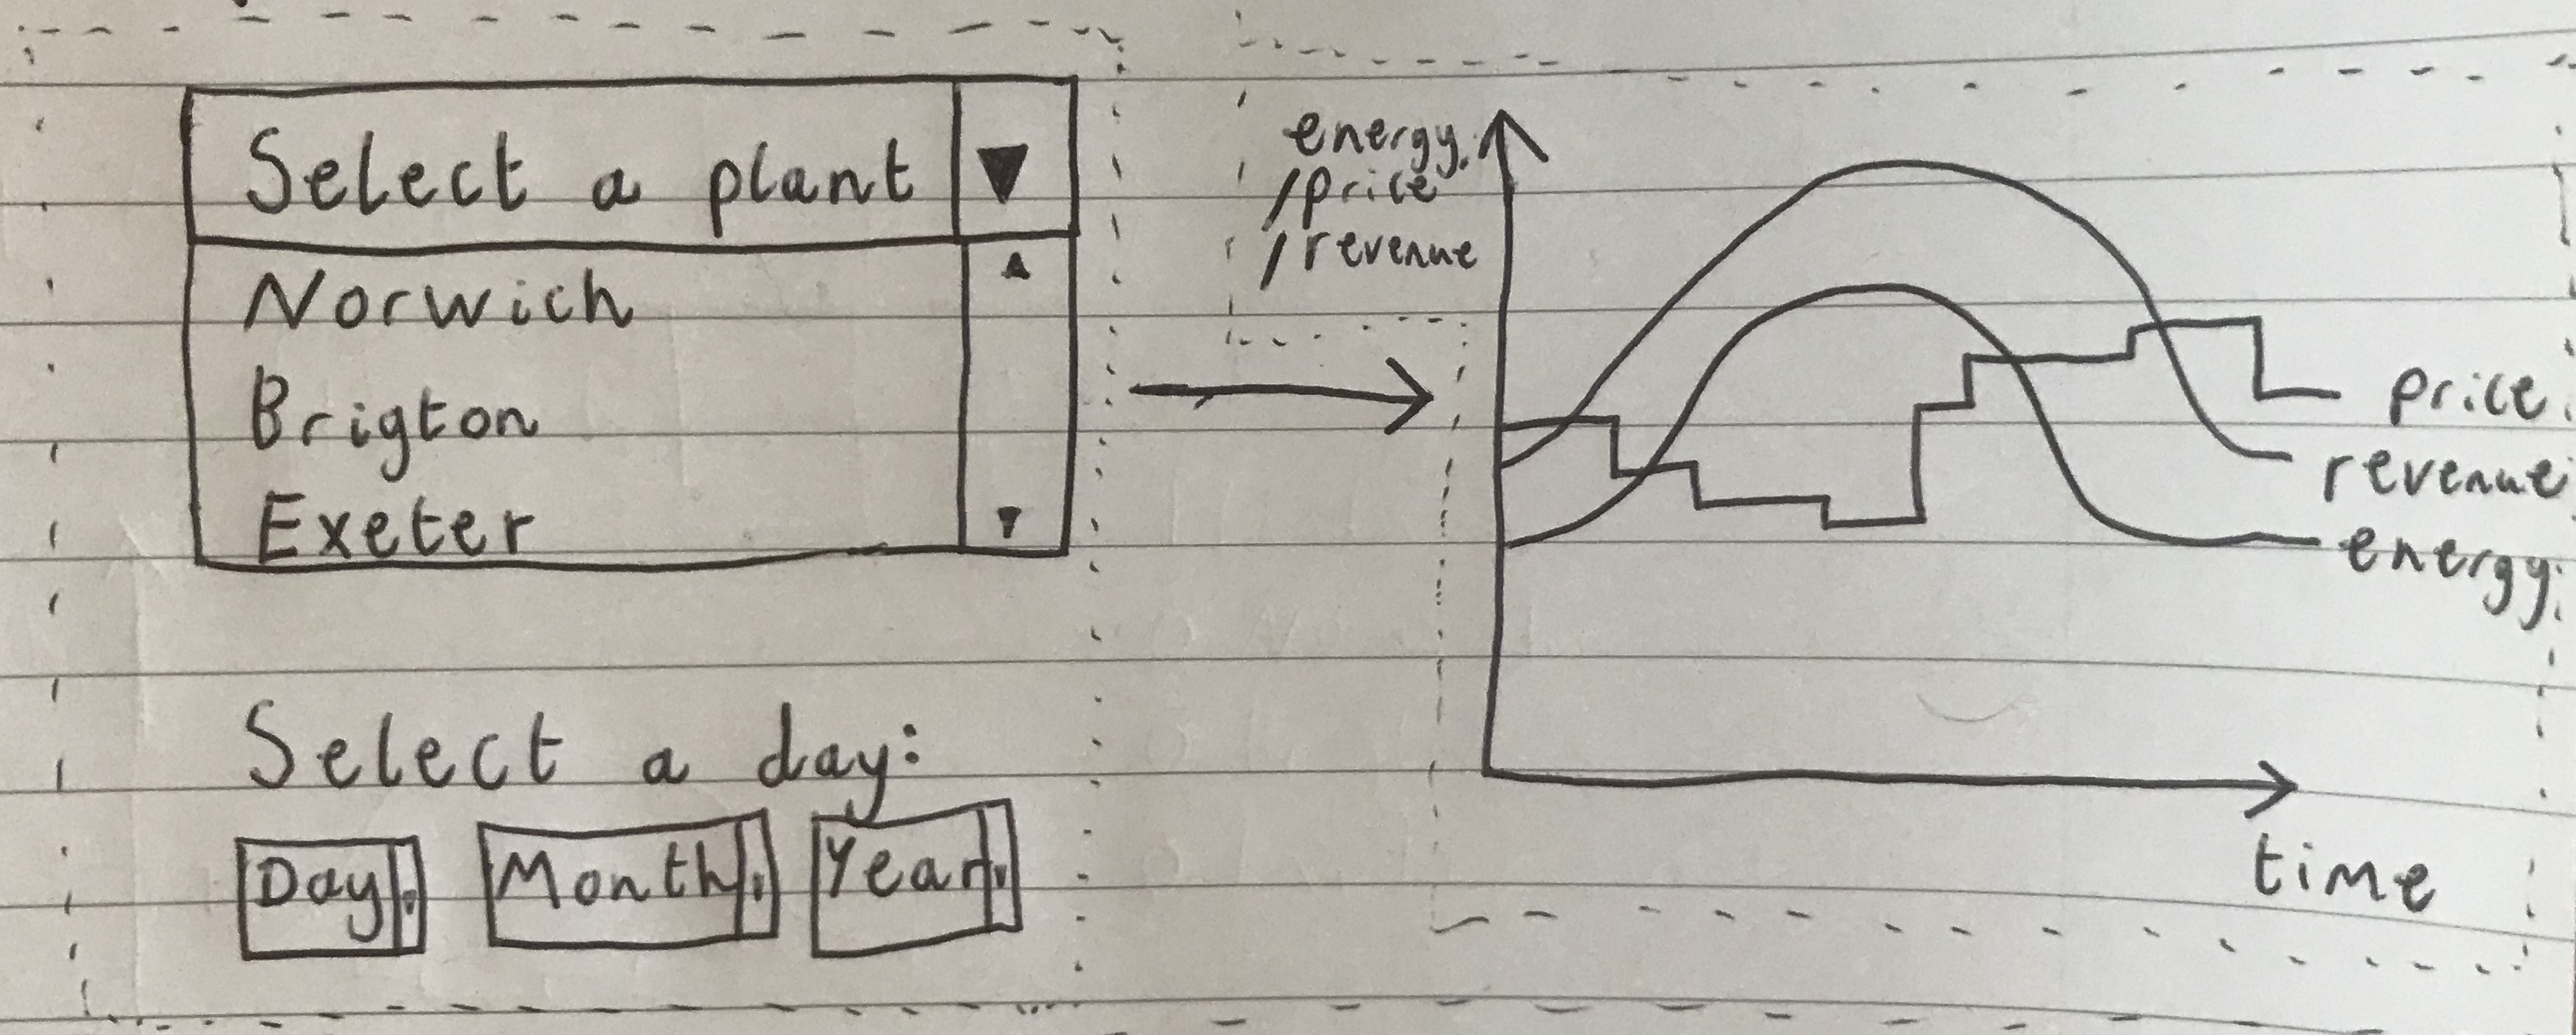 Select a plant
Norwich
Brigton
Exeter
Select a day:
Day
Month
Year
energy
/price
/revenue
price
revenue
energy
time